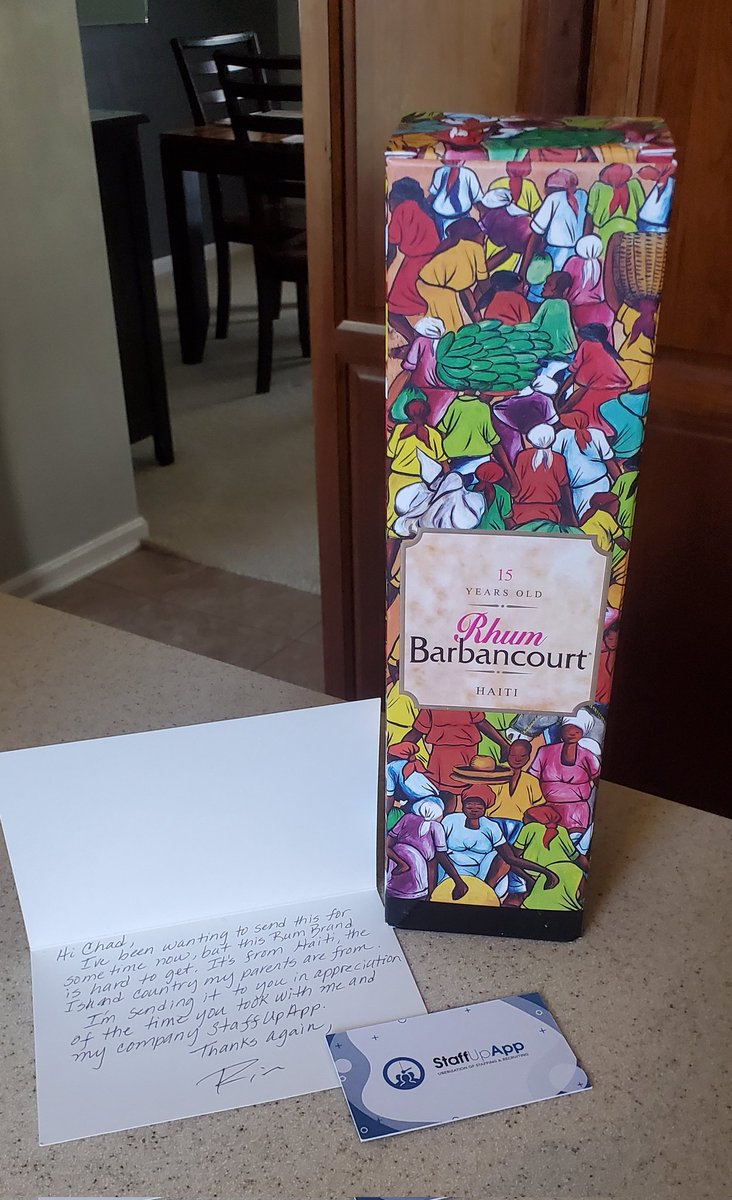 15
YEARS OLD
Rhum
Barbancourt
HAITI
Hi Chad,
I've been wanting to send this for
some time now, but this Rum Brand
is hard to get. It's from Haiti, the
Island country my parents are from.
I'm sending it to you in appreciation
of the time you took with me and
my company StaffUpApp.
Thanks again,
StaffUpApp
UBERIZATION OF STAFFING & RECRUITING